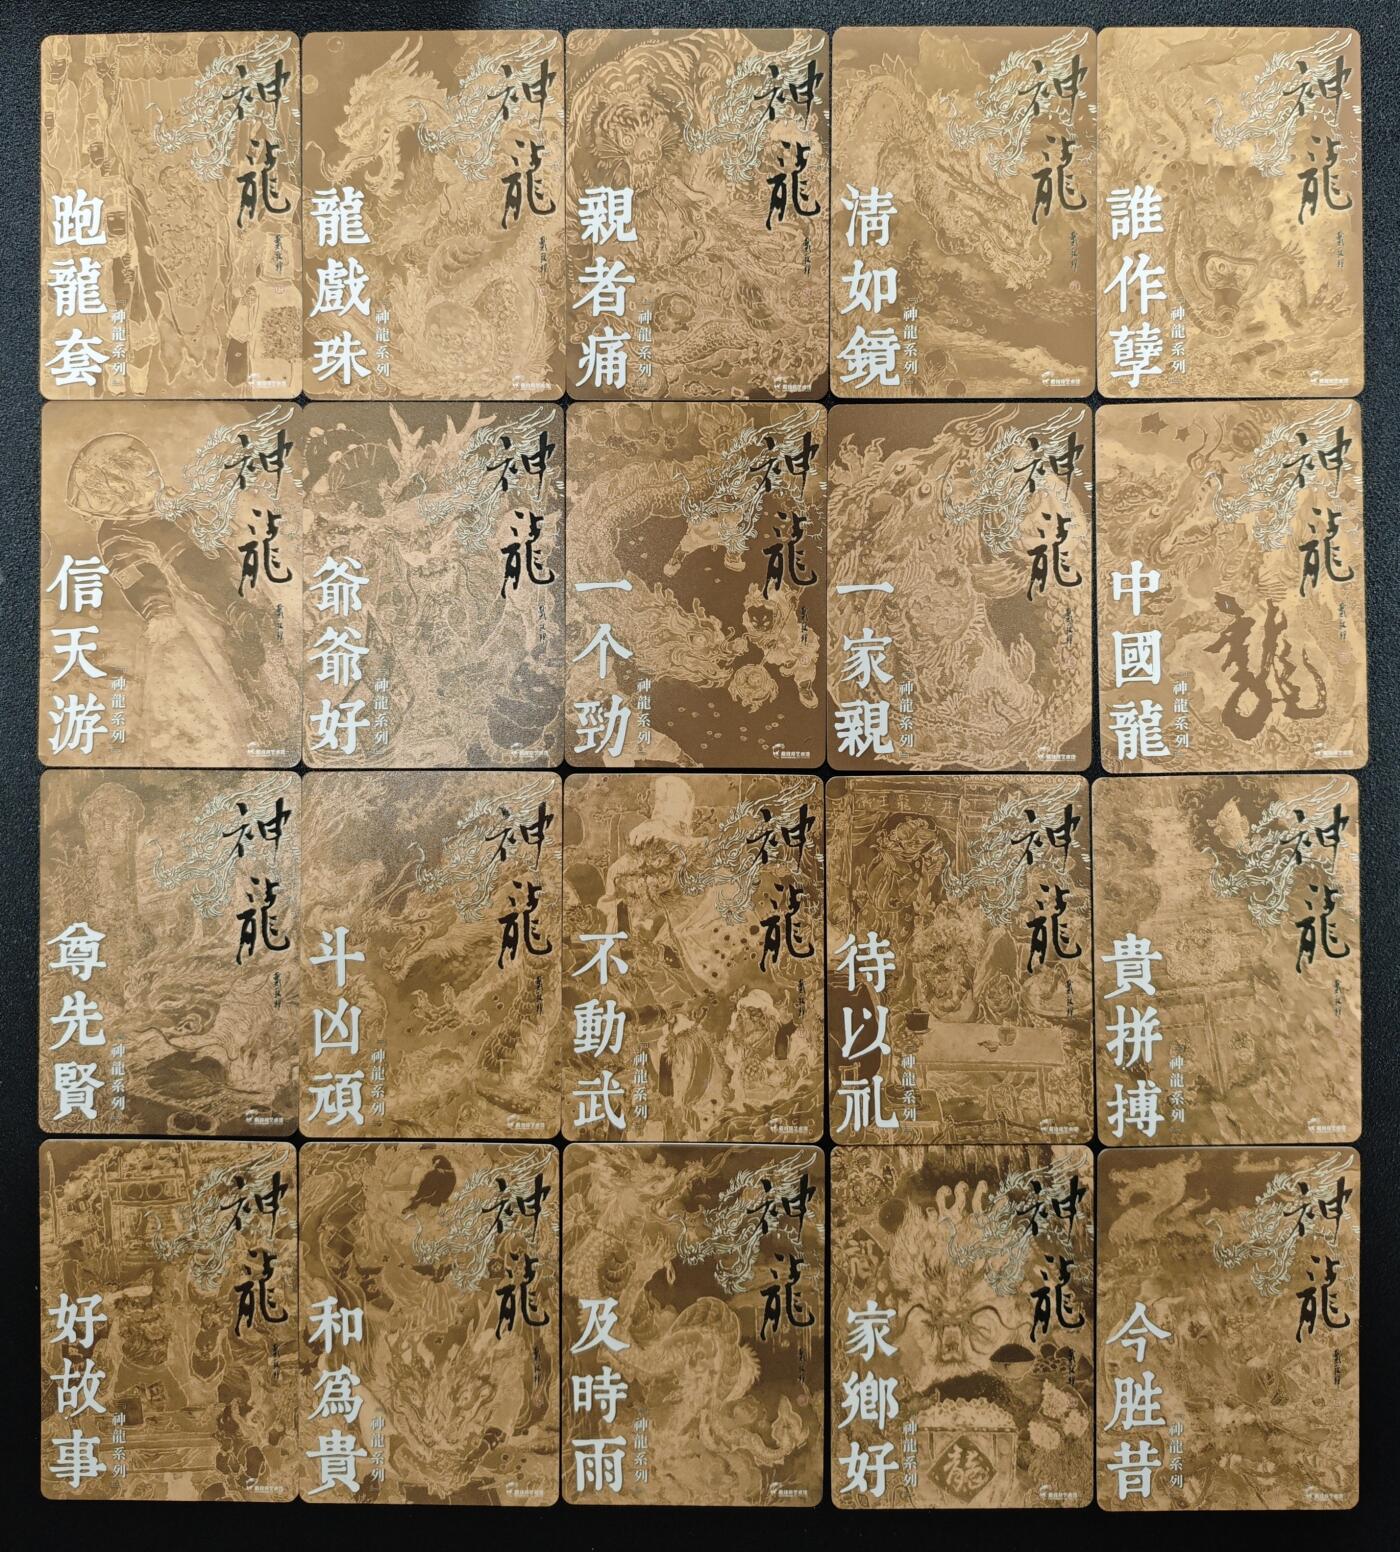 神龍
跑龍套
「神龍系列」
神龍
龍戲珠
「神龍系列」
神龍
親者痛
「神龍系列」
神龍
清如鏡
「神龍系列」
神龍
誰作孽
「神龍系列」
神龍
信天游
「神龍系列」
神龍
爺爺好
「神龍系列」
神龍
一个勁
「神龍系列」
神龍
一家親
「神龍系列」
神龍
中國龍
「神龍系列」
龍
神龍
尊先賢
「神龍系列」
神龍
斗凶頑
「神龍系列」
神龍
不動武
「神龍系列」
神龍
待以礼
「神龍系列」
神龍
貴拼搏
「神龍系列」
神龍
好故事
「神龍系列」
神龍
和爲貴
「神龍系列」
神龍
及時雨
「神龍系列」
神龍
家鄉好
「神龍系列」
龍
神龍
今胜昔
「神龍系列」